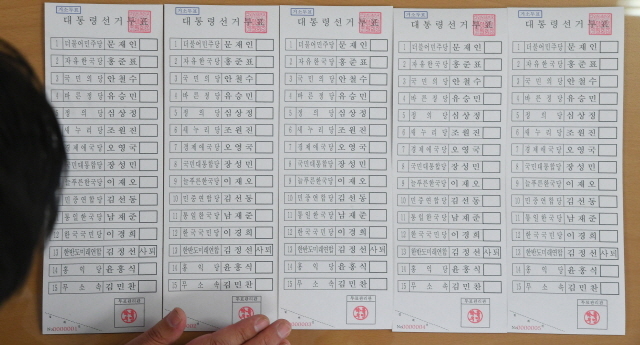 거소투표
대통령선거투표
1 더불어민주당 문재인
2 자유한국당 홍준표
3 국민의당 안철수
4 바른정당 유승민
5 정의당 심상정
6 새누리당 조원진
7 경제애국당 오영국
8 국민대통합당 장성민
9 늘푸른한국당 이재오
10 민중연합당 김선동
11 통일한국당 남재준
12 한국국민당 이경희
13 한반도미래연합 김정선 사퇴
14 홍익당 윤홍식
15 무소속 김민찬
투표관리관
거소투표
대통령선거투표
1 더불어민주당 문재인
2 자유한국당 홍준표
3 국민의당 안철수
4 바른정당 유승민
5 정의당 심상정
6 새누리당 조원진
7 경제애국당 오영국
8 국민대통합당 장성민
9 늘푸른한국당 이재오
10 민중연합당 김선동
11 통일한국당 남재준
12 한국국민당 이경희
13 한반도미래연합 김정선 사퇴
14 홍익당 윤홍식
15 무소속 김민찬
투표관리관
거소투표
대통령선거투표
1 더불어민주당 문재인
2 자유한국당 홍준표
3 국민의당 안철수
4 바른정당 유승민
5 정의당 심상정
6 새누리당 조원진
7 경제애국당 오영국
8 국민대통합당 장성민
9 늘푸른한국당 이재오
10 민중연합당 김선동
11 통일한국당 남재준
12 한국국민당 이경희
13 한반도미래연합 김정선 사퇴
14 홍익당 윤홍식
15 무소속 김민찬
투표관리관
거소투표
대통령선거투표
1 더불어민주당 문재인
2 자유한국당 홍준표
3 국민의당 안철수
4 바른정당 유승민
5 정의당 심상정
6 새누리당 조원진
7 경제애국당 오영국
8 국민대통합당 장성민
9 늘푸른한국당 이재오
10 민중연합당 김선동
11 통일한국당 남재준
12 한국국민당 이경희
13 한반도미래연합 김정선 사퇴
14 홍익당 윤홍식
15 무소속 김민찬
투표관리관
거소투표
대통령선거투표
1 더불어민주당 문재인
2 자유한국당 홍준표
3 국민의당 안철수
4 바른정당 유승민
5 정의당 심상정
6 새누리당 조원진
7 경제애국당 오영국
8 국민대통합당 장성민
9 늘푸른한국당 이재오
10 민중연합당 김선동
11 통일한국당 남재준
12 한국국민당 이경희
13 한반도미래연합 김정선 사퇴
14 홍익당 윤홍식
15 무소속 김민찬
투표관리관